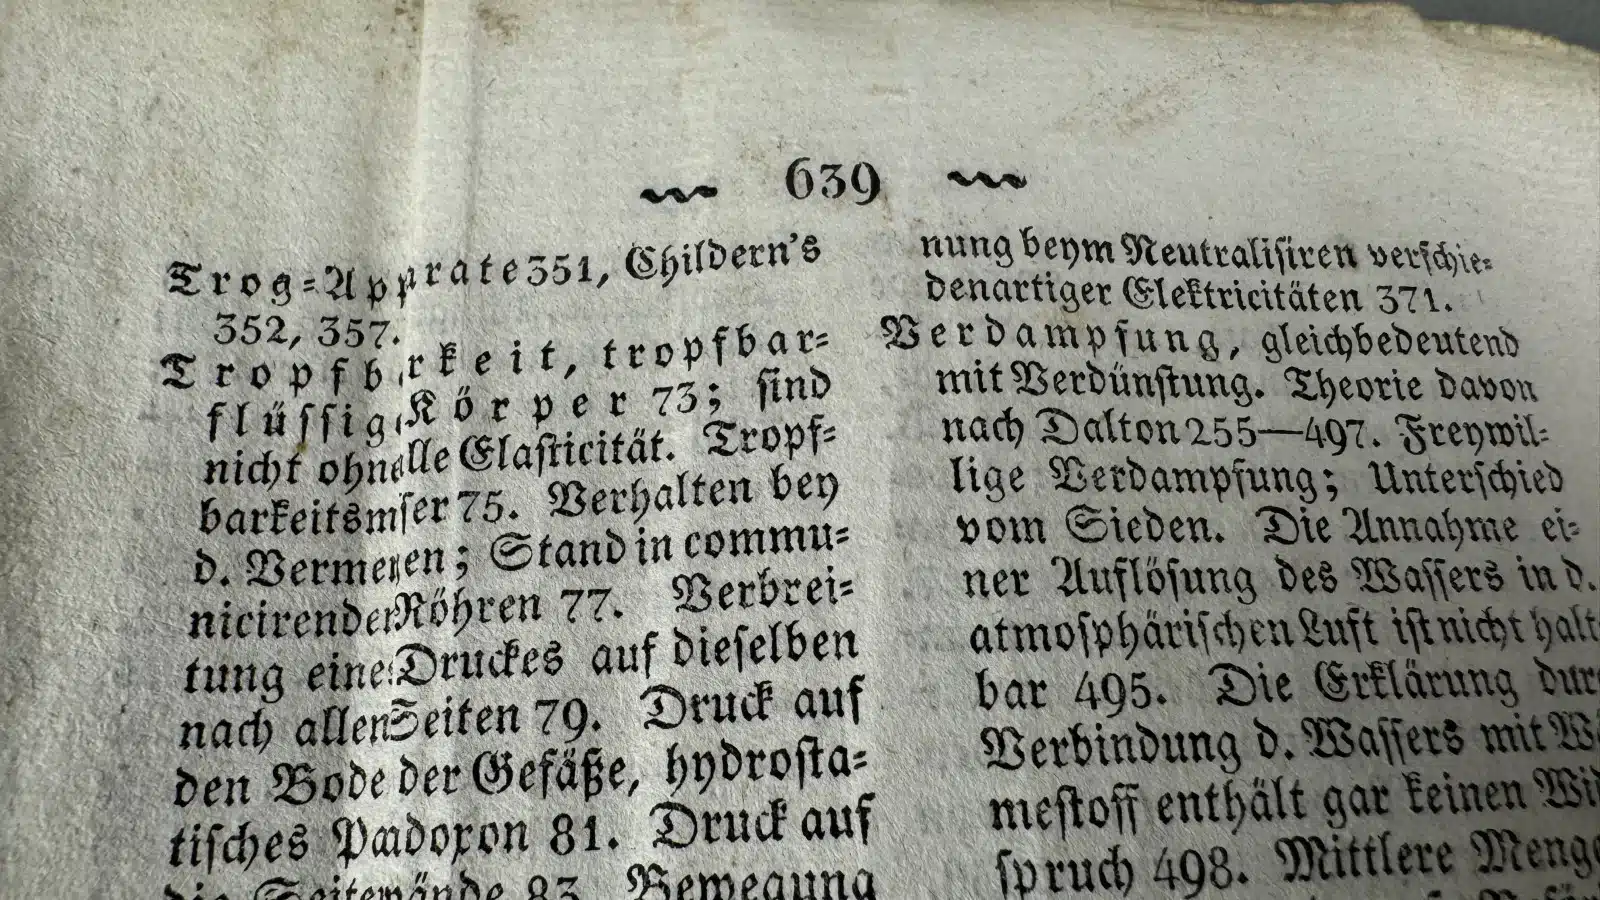 639
Trog=Apparate 351, Childern's
352, 357.
Tropfbarkeit, tropfbar=
flüssige Körper 73; sind
nicht ohne alle Elasticität. Tropf=
barkeitsmesser 75. Verhalten bey
d. Vermengen; Stand in commu=
nicirenden Röhren 77. Verbrei=
tung eines Druckes auf dieselben
nach allen Seiten 79. Druck auf
den Boden der Gefäße, hydrosta=
tisches Paradoxon 81. Druck auf
die Seitewände 83. Bewegung
nung beym Neutralisiren verschie=
denartiger Elektricitäten 371.
Verdampfung, gleichbedeutend
mit Verdünstung. Theorie davon
nach Dalton 255—497. Freywil=
lige Verdampfung; Unterschied
vom Sieden. Die Annahme ei=
ner Auflösung des Wassers in d.
atmosphärischen Luft ist nicht halt
bar 495. Die Erklärung dur
Verbindung d. Wassers mit W
mestoff enthält gar keinen Wi
spruch 498. Mittlere Menge